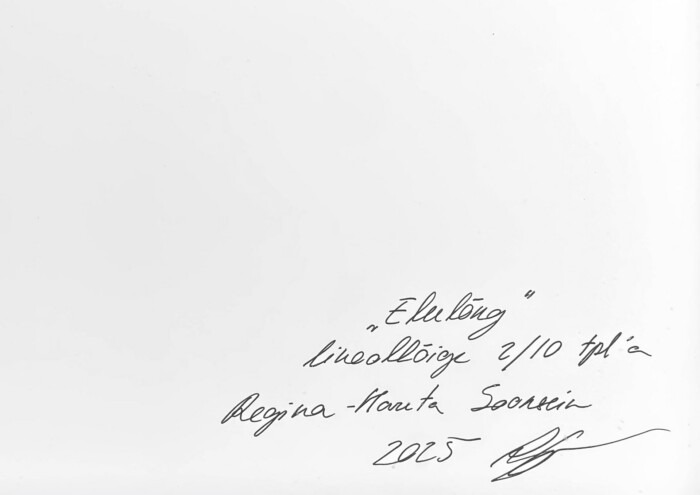 „Elulõng"
linoollõige 2/10 tpl'a
Regina-Mareta Soonsein
2025